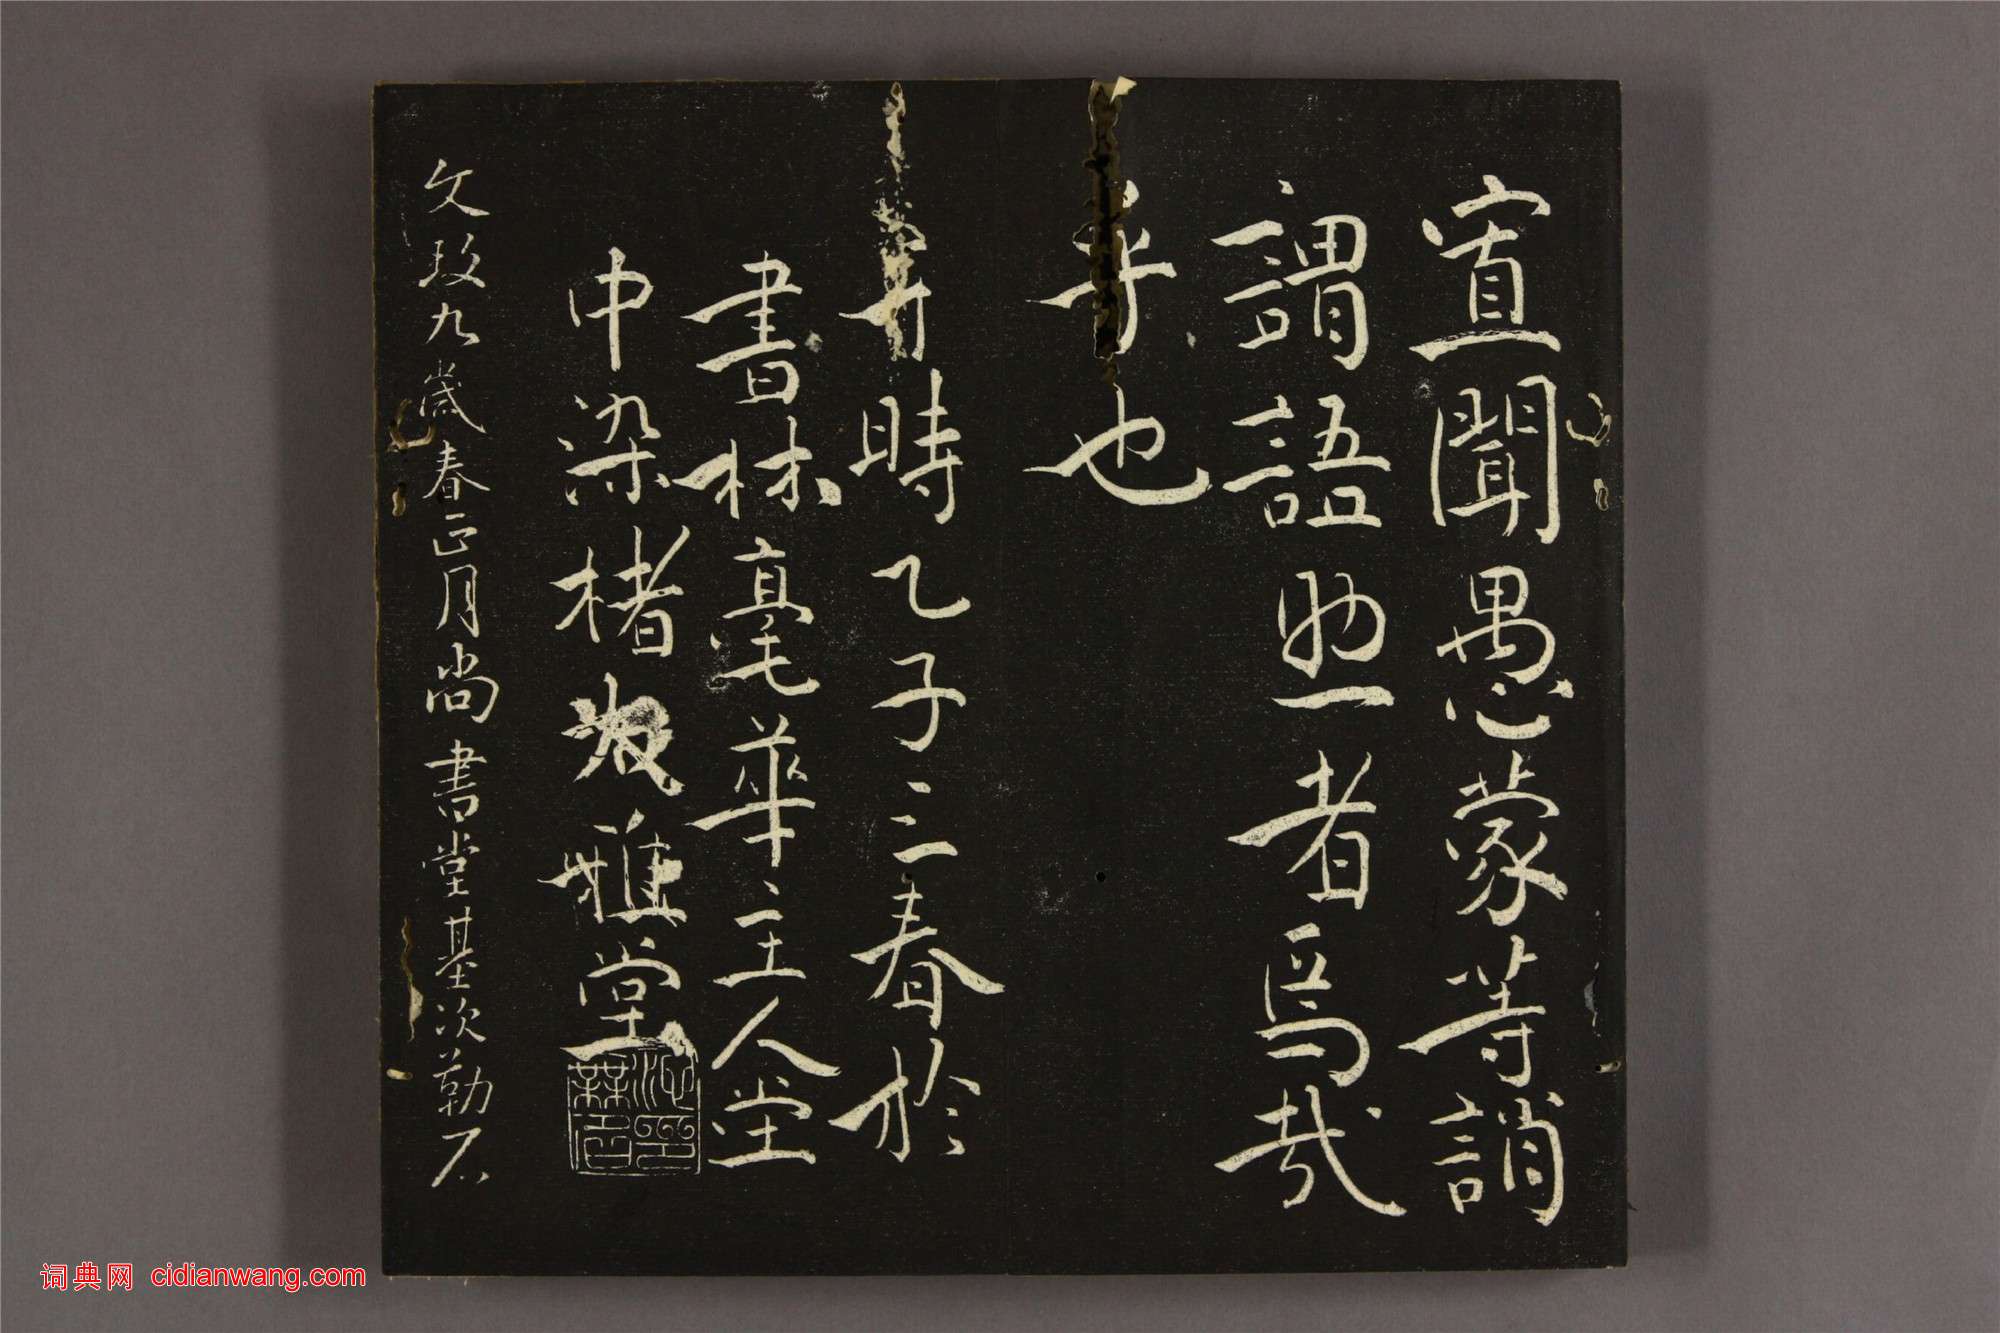 寡聞愚蒙等誚
謂語助者焉哉
乎也
時乙子三春於
書林毫華主人堂
中染楮 雅堂
文政九歲春正月尚書堂基次勒石
词典网 cidianwang.com